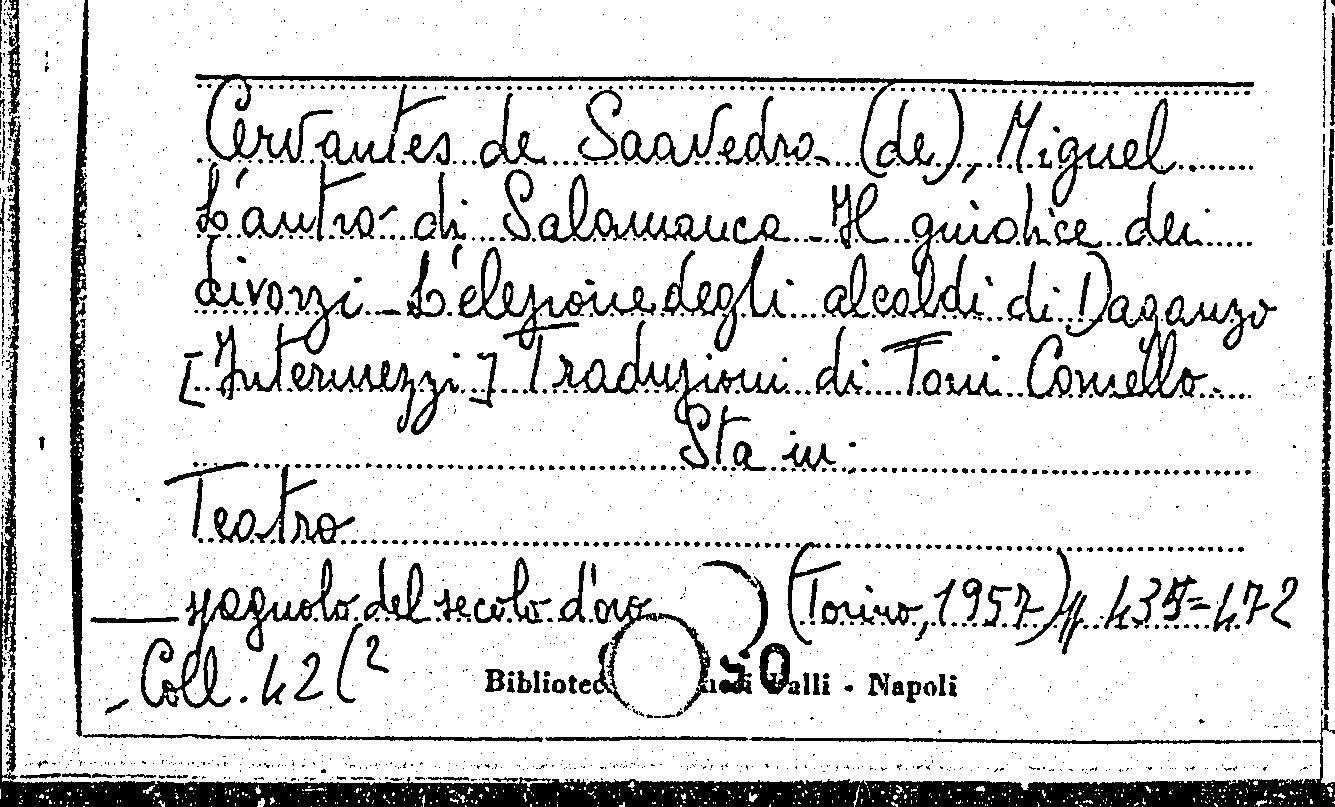 Cervantes de Saavedra (de), Miguel
L'antro di Salamanca - Il giudice dei
divorzi - L'elezione degli alcaldi di Daganzo
[Intermezzi] Traduzioni di Toni Comello.
Sta in:
Teatro
spagnolo del secolo d'oro (Torino, 1957) pp 435=472
- Coll. 42 (2
Valli - Napoli